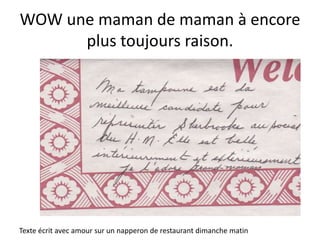 WOW une maman de maman à encore
plus toujours raison.
Welc
Ma tampoune est la
meilleure candidate pour
représenter Sherbrooke au social
du H.M. Elle est belle
intérieurement et extérieurement
je l'adore Grandmaman
Texte écrit avec amour sur un napperon de restaurant dimanche matin